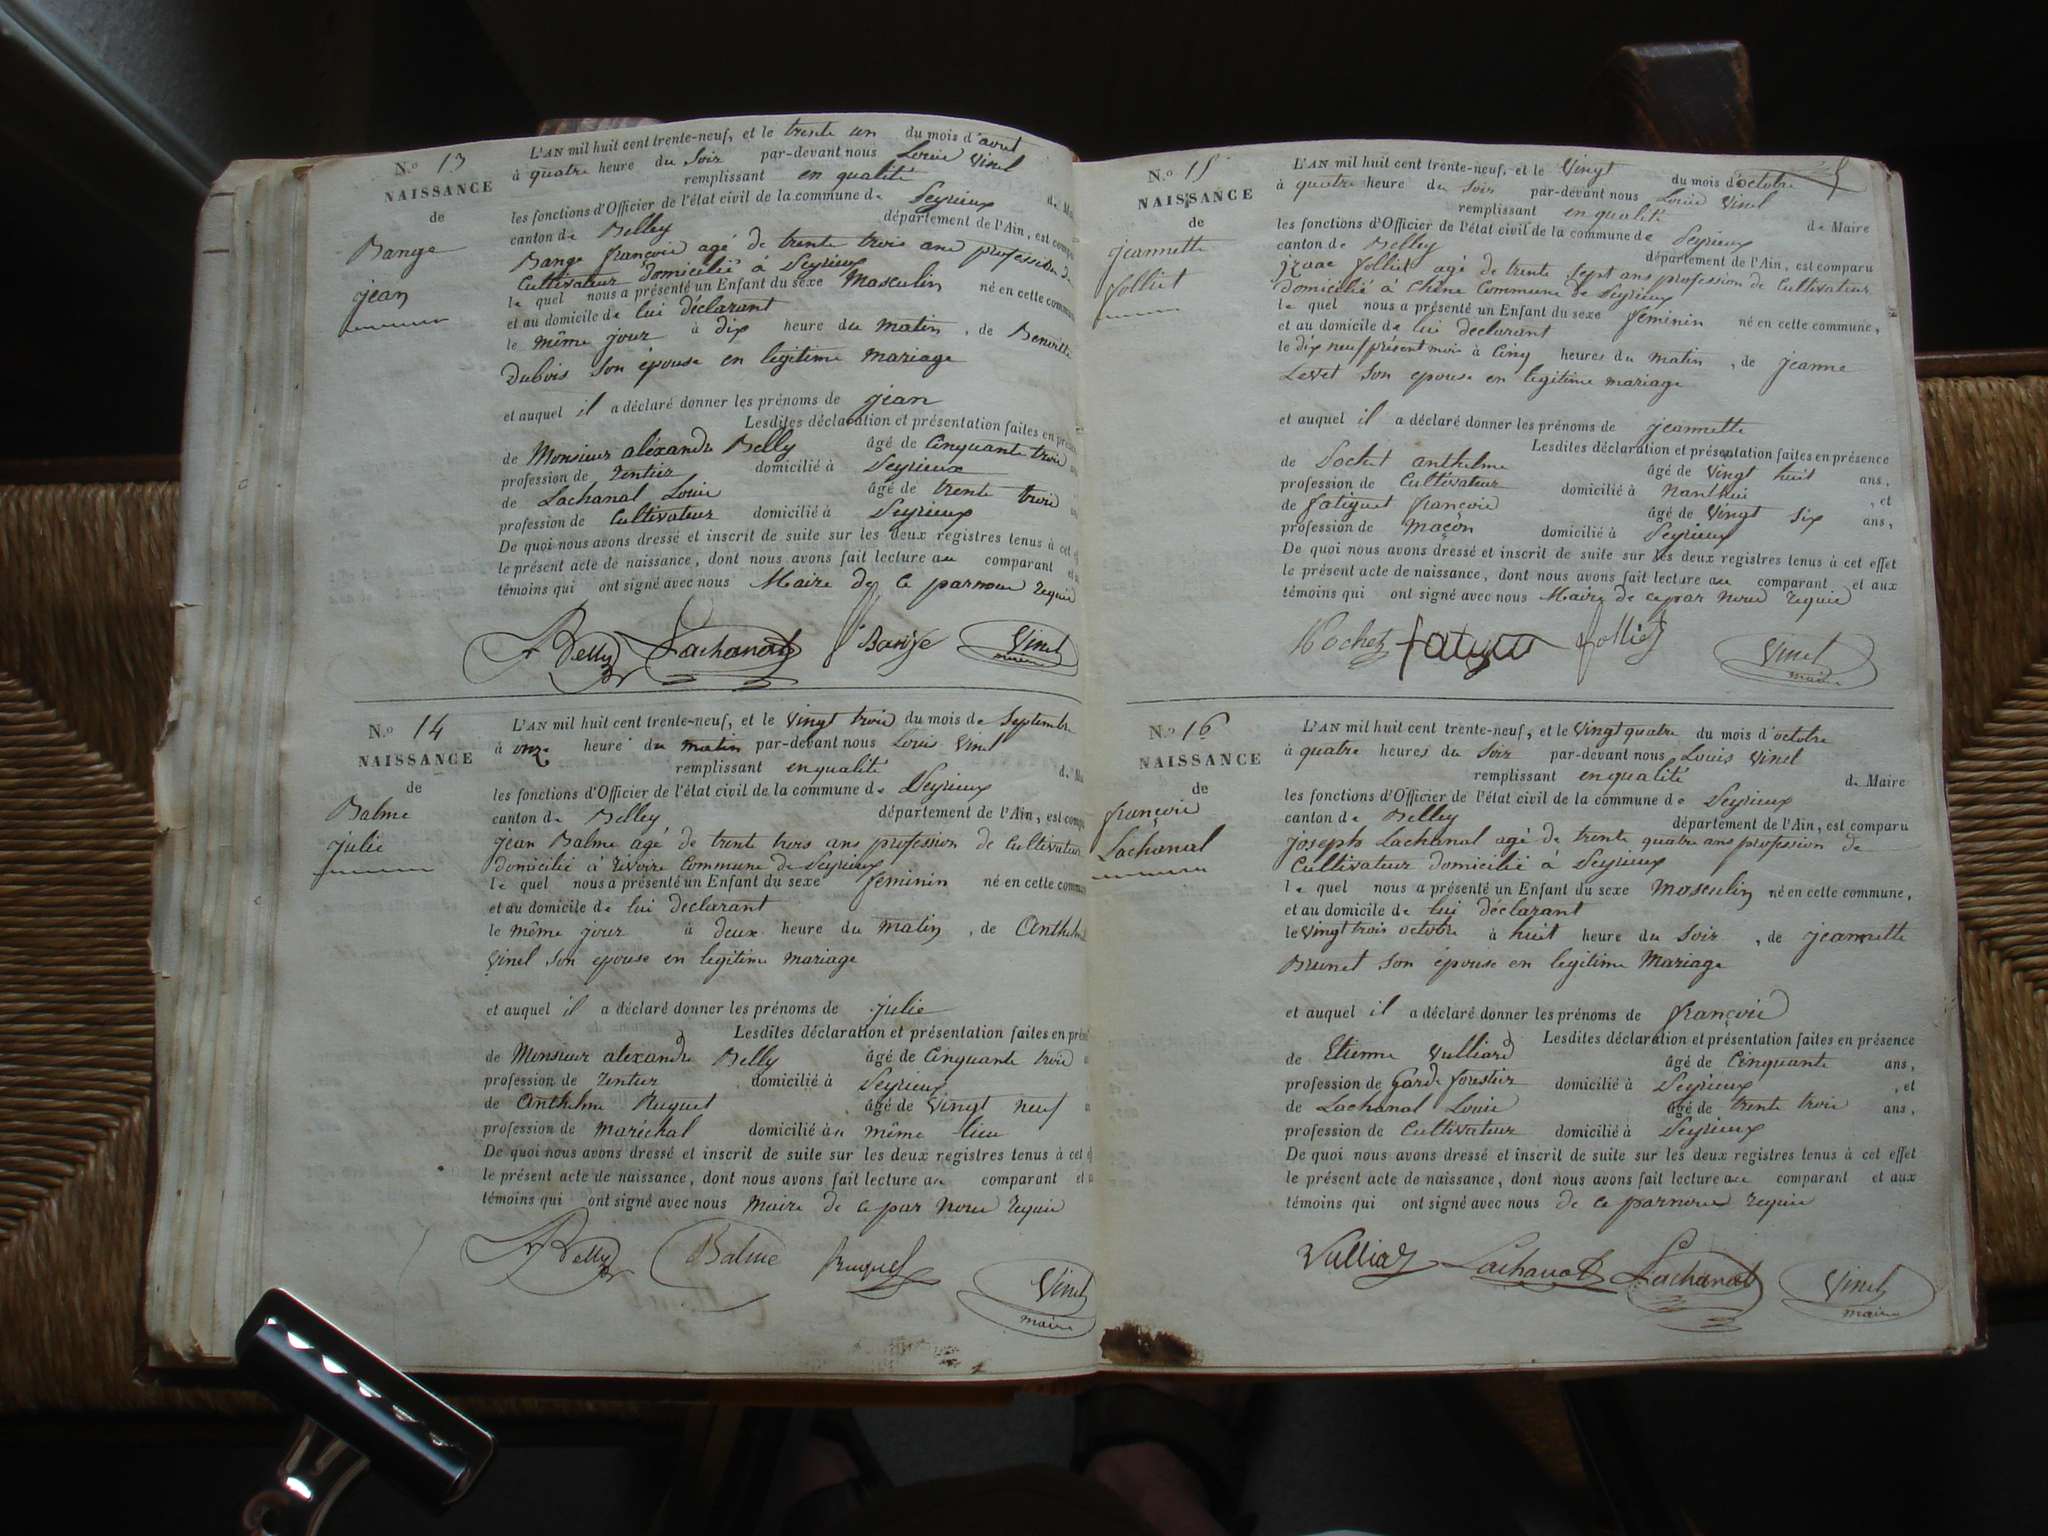 N.o 13
NAISSANCE
de
Bange
jean
L'AN mil huit cent trente-neuf, et le trente un du mois d'aout
à quatre heure du soir par-devant nous Louis Vinel
remplissant en qualité de Ma
les fonctions d'Officier de l'état civil de la commune de Peyrieux
canton de Belley département de l'Ain, est compa
Bange françois agé de trente trois ans profession de
Cultivateur domicilié à Peyrieux
le quel nous a présenté un Enfant du sexe Masculin né en cette commune
et au domicile de lui déclarant
le même jour à dix heure du matin, de Benoitte
Dubois son épouse en legitime mariage
et auquel il a déclaré donner les prénoms de jean
Lesdites déclaration et présentation faites en prése
de Monsieur aléxandre Belly âgé de Cinquante trois
profession de rentier domicilié à Peyrieux
de Lachanal Louis âgé de trente trois
profession de Cultivateur domicilié à Peyrieux
De quoi nous avons dressé et inscrit de suite sur les deux registres tenus à cet e
le présent acte de naissance, dont nous avons fait lecture au comparant et a
témoins qui ont signé avec nous Maire de ce par nous requis
Belly Lachanal Bange Vinel
maire
N.o 14
NAISSANCE
de
Balme
julie
L'AN mil huit cent trente-neuf, et le vingt trois du mois de Septembre
à onze heure du matin par-devant nous Louis Vinel
remplissant en qualité de Ma
les fonctions d'Officier de l'état civil de la commune de Peyrieux
canton de Belley département de l'Ain, est compa
jean Balme agé de trente trois ans profession de Cultivateur
domicilié à rivoire Commune de Peyrieux
le quel nous a présenté un Enfant du sexe feminin né en cette commun
et au domicile de lui declarant
le même jour à deux heure du matin, de Anthelm
Vinel son epouse en legitime mariage
et auquel il a déclaré donner les prénoms de julie
Lesdites déclaration et présentation faites en prése
de Monsieur alexandre Belly âgé de Cinquante trois
profession de rentier domicilié à Peyrieux
de Anthelme Ruguet âgé de vingt neuf
profession de maréchal domicilié au même lieu
De quoi nous avons dressé et inscrit de suite sur les deux registres tenus à cet e
le présent acte de naissance, dont nous avons fait lecture au comparant et a
témoins qui ont signé avec nous maire de ce par nous requis
Belly Balme Ruguet Vinel
maire
N.o 15
NAISSANCE
de
jeannette
folliet
L'AN mil huit cent trente-neuf, et le vingt du mois d'octobre
à quatre heure du soir par-devant nous Louis Vinel
remplissant en qualité de Maire
les fonctions d'Officier de l'état civil de la commune de Peyrieux
canton de Belley département de l'Ain, est comparu
izaac folliet agé de trente sept ans profession de Cultivateur
domicilié à Chêne Commune de Peyrieux
le quel nous a présenté un Enfant du sexe feminin né en cette commune,
et au domicile de lui declarant
le dix neuf présent mois à Cinq heures du matin, de jeanne
Levet son epouse en legitime mariage
et auquel il a déclaré donner les prénoms de jeannette
Lesdites déclaration et présentation faites en présence
de Pochet anthelme âgé de vingt huit ans,
profession de Cultivateur domicilié à Nanthui, et
de fatiguet françois âgé de vingt six ans,
profession de maçon domicilié à Peyrieux
De quoi nous avons dressé et inscrit de suite sur les deux registres tenus à cet effet
le présent acte de naissance, dont nous avons fait lecture au comparant et aux
témoins qui ont signé avec nous Maire de ce par nous requis
Pochet folliet Vinel
maire
N.o 16
NAISSANCE
de
françois
Lachanal
L'AN mil huit cent trente-neuf, et le vingt quatre du mois d'octobre
à quatre heures du soir par-devant nous Louis Vinel
remplissant en qualité de Maire
les fonctions d'Officier de l'état civil de la commune de Peyrieux
canton de Belley département de l'Ain, est comparu
joseph Lachanal agé de trente quatre ans profession de
Cultivateur domicilié à Peyrieux
le quel nous a présenté un Enfant du sexe masculin né en cette commune,
et au domicile de lui déclarant
le vingt trois octobre à huit heure du soir, de jeannette
Brunet son épouse en legitime Mariage
et auquel il a déclaré donner les prénoms de françois
Lesdites déclaration et présentation faites en présence
de Etienne Vulliard âgé de Cinquante ans,
profession de Garde forestier domicilié à Peyrieux, et
de Lachanal Louis âgé de trente trois ans,
profession de Cultivateur domicilié à Peyrieux
De quoi nous avons dressé et inscrit de suite sur les deux registres tenus à cet effet
le présent acte de naissance, dont nous avons fait lecture au comparant et aux
témoins qui ont signé avec nous de ce par nous requis
Vulliard Lachanal Lachanal Vinel
maire